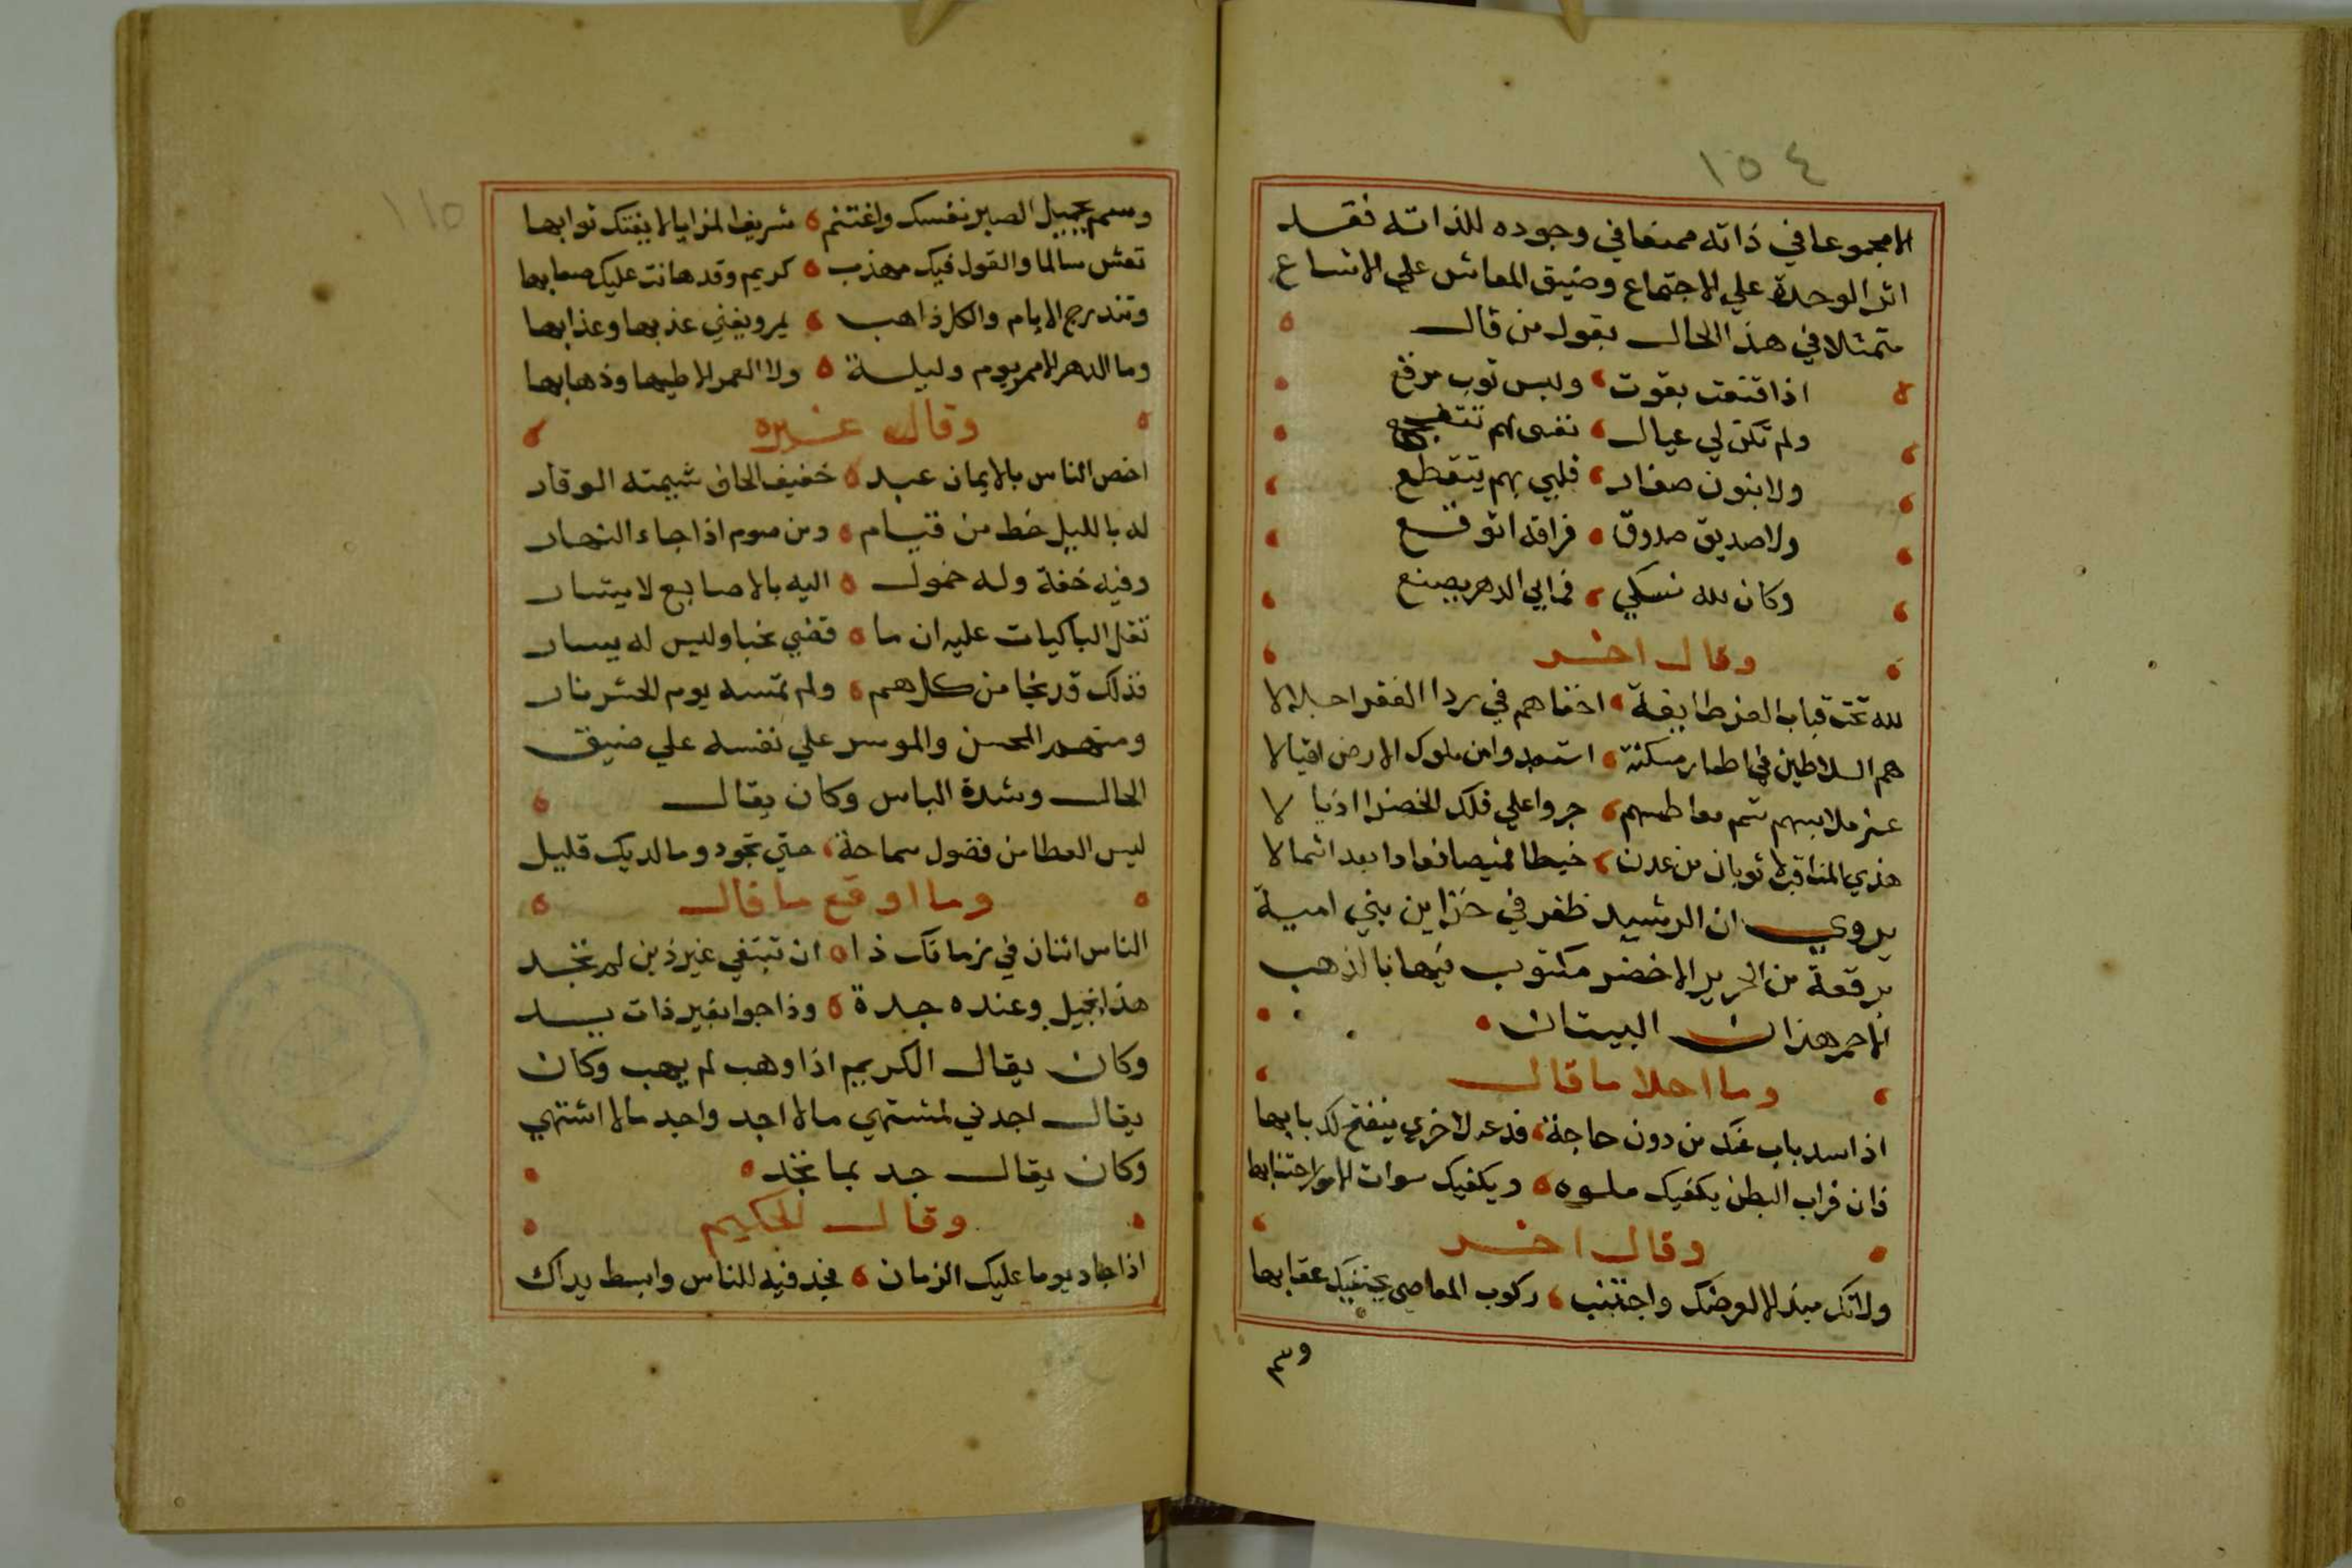 ١٥٤
الا مجموعا في ذاته ممنعا في وجوده للذاته فقد
اثر الوحدة علي الاجتماع وضيق المعاش علي الاتساع
متمثلا في هذا الحال بقول من قال
اذا قنعت بقوت وليس ثوب مرقع
ولم تكن لي عيال نفسي لهم تتفجع
ولا بنون صغار قلبي بهم يتقطع
ولا صديق صدوق فراقه اتوقع
وكان لله نسكي فما بي الدهر يصنع
وقال اخر
لله تحت قباب العز طايفة اخفاهم في ردا الفقر اجلالا
هم السلاطين في اطمار مسكنة استعبدوا من ملوك الارض اقيالا
غبر ملابسهم شم معاطسهم جروا علي فلك الخضرا اذيالا
هذي المناقب لا ثوبان من عدن خيطا قميصا فعادا بعد اشمالا
يروي ان الرشيد ظفر في خزاين بني امية
برقعة من الحرير الاخضر مكتوب فيها بالذهب
الاحمر هذان البيتان
وما احلا ما قال
اذا سد باب عنك من دون حاجة فدعه لاخري ينفتح لك بابها
فان قراب البطن يكفيك ملوه ويكفيك سوات الامور اجتنابها
وقال اخر
ولا تك مبذلا لعرضك واجتنب ركوب المعاصي يجتنبك عقابها
وسم
١١٥
وسم بجميل الصبر نفسك واغتنم شريف المزايا لا يفتك ثوابها
تعش سالما والقول فيك مهذب كريم وقد هانت عليك صعابها
وتندرج الايام والكل ذاهب يمر ويفني عذبها وعذابها
وما الدهر الا مر يوم وليلة ولا العمر الا طيها وذهابها
وقال غيره
اخص الناس بالايمان عبد خفيف الحاذ شيمته الوقار
له بالليل خط من قيام ومن صوم اذا جاء النهار
وفيه خفة وله خمول اليه بالاصابع لا يشار
تقل الباكيات عليه ان ما قضي نحبا وليس له يسار
فذلك قد نجا من كل هم ولم تمسه يوم الحشر نار
ومنهم المحسن والموسر علي نفسه علي ضيق
الحال وشدة الباس وكان يقال
ليس العطا من فضول سماحة حتي تجود وما لديك قليل
وما اوقع ما قال
الناس اثنان في زمانك ذا ان تبتغي غير ذين لم تجد
هذا بخيل وعنده جدة وذا جواد بغير ذات يد
وكان يقال الكريم اذا وهب لم يهب وكان
يقال اجدني لمشتهي ما لا اجد واجد ما لا اشتهي
وكان يقال جد بما تجد
وقال الحكيم
اذا جاد يوما عليك الزمان فجد فيه للناس وابسط يداك